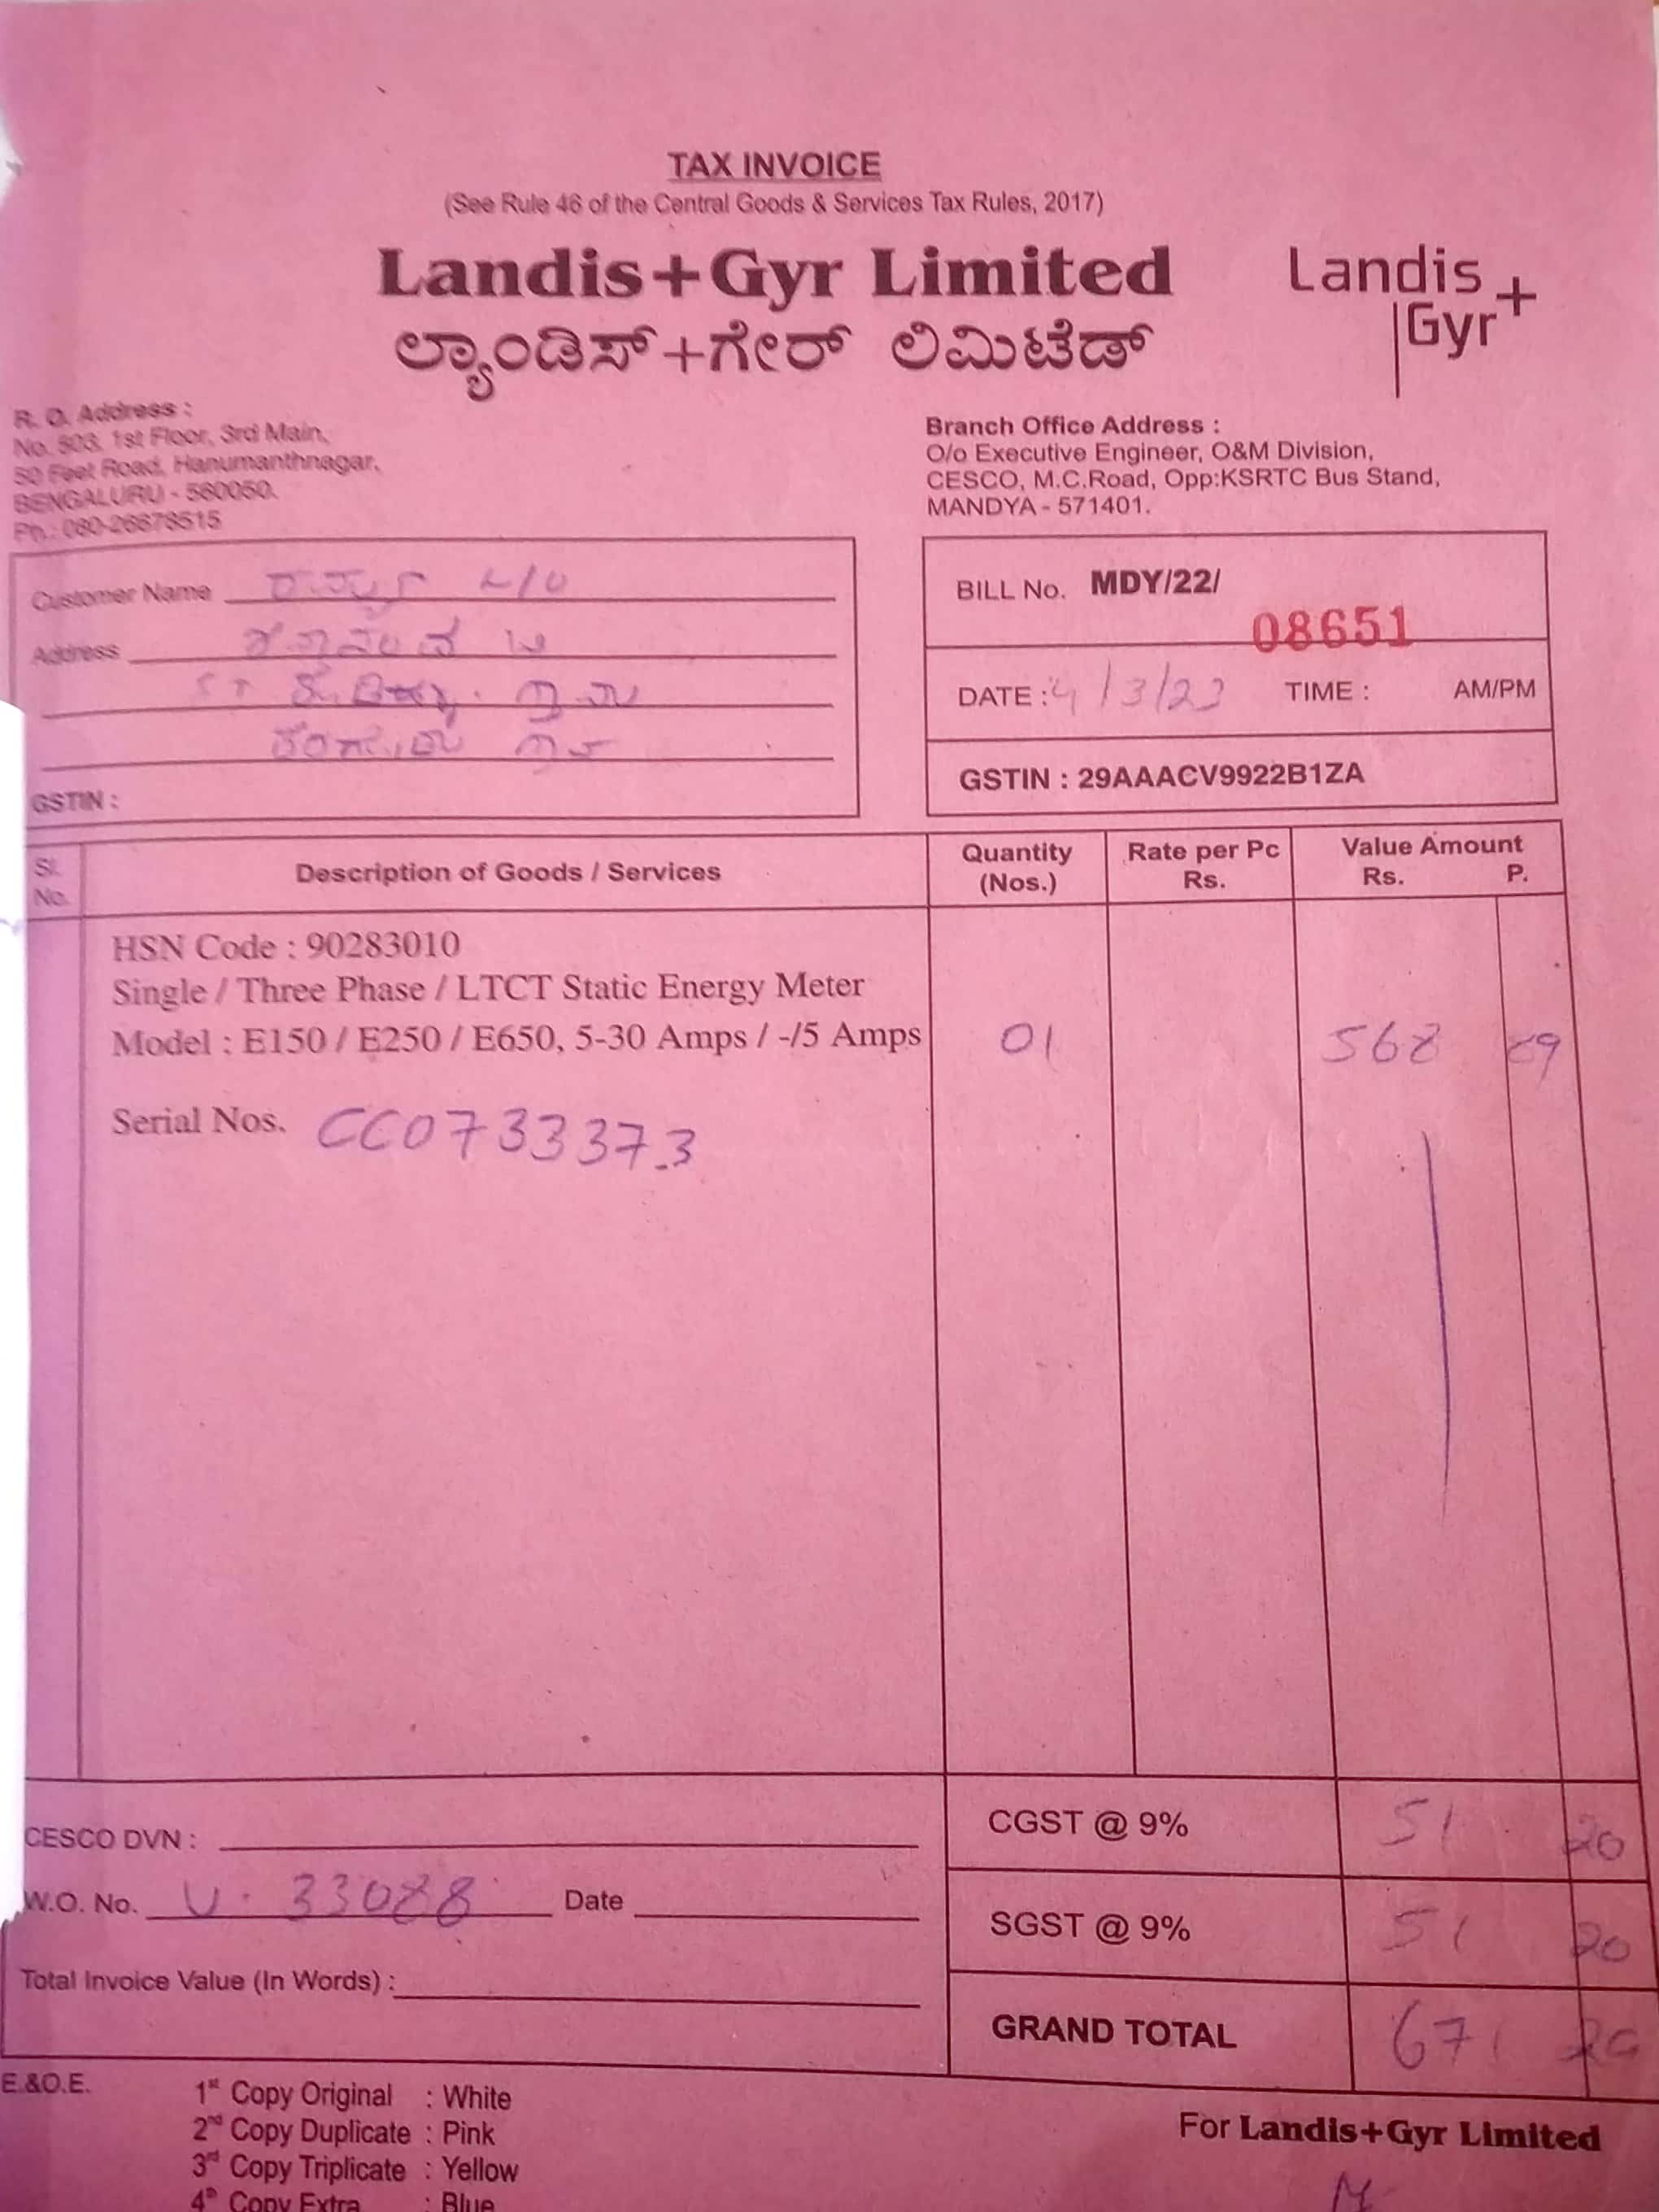 TAX INVOICE
(See Rule 46 of the Central Goods & Services Tax Rules, 2017)
Landis+Gyr Limited
Landis
Gyr+
ಲ್ಯಾಂಡಿಸ್+ಗೇರ್ ಲಿಮಿಟೆಡ್
R. O. Address :
No. 503, 1st Floor, 3rd Main,
50 Feet Road, Hanumanthnagar,
BENGALURU - 560050.
Ph.: 080-26678515
Branch Office Address :
O/o Executive Engineer, O&M Division,
CESCO, M.C.Road, Opp:KSRTC Bus Stand,
MANDYA - 571401.
Customer Name
Address
GSTIN :
BILL No. MDY/22/
08651
DATE : 4/3/23 TIME : AM/PM
GSTIN : 29AAACV9922B1ZA
Sl. No. Description of Goods / Services Quantity (Nos.) Rate per Pc Rs. Value Amount Rs. P.
HSN Code : 90283010
Single / Three Phase / LTCT Static Energy Meter
Model : E150 / E250 / E650, 5-30 Amps / -/5 Amps 01 568
Serial Nos. CC0733373
CESCO DVN :
CGST @ 9% 51 20
W.O. No. U. 33088 Date
SGST @ 9% 51 20
Total Invoice Value (In Words) :
GRAND TOTAL 671
E.&O.E.
1st Copy Original : White
2nd Copy Duplicate : Pink
3rd Copy Triplicate : Yellow
4th Copy Extra : Blue
For Landis+Gyr Limited